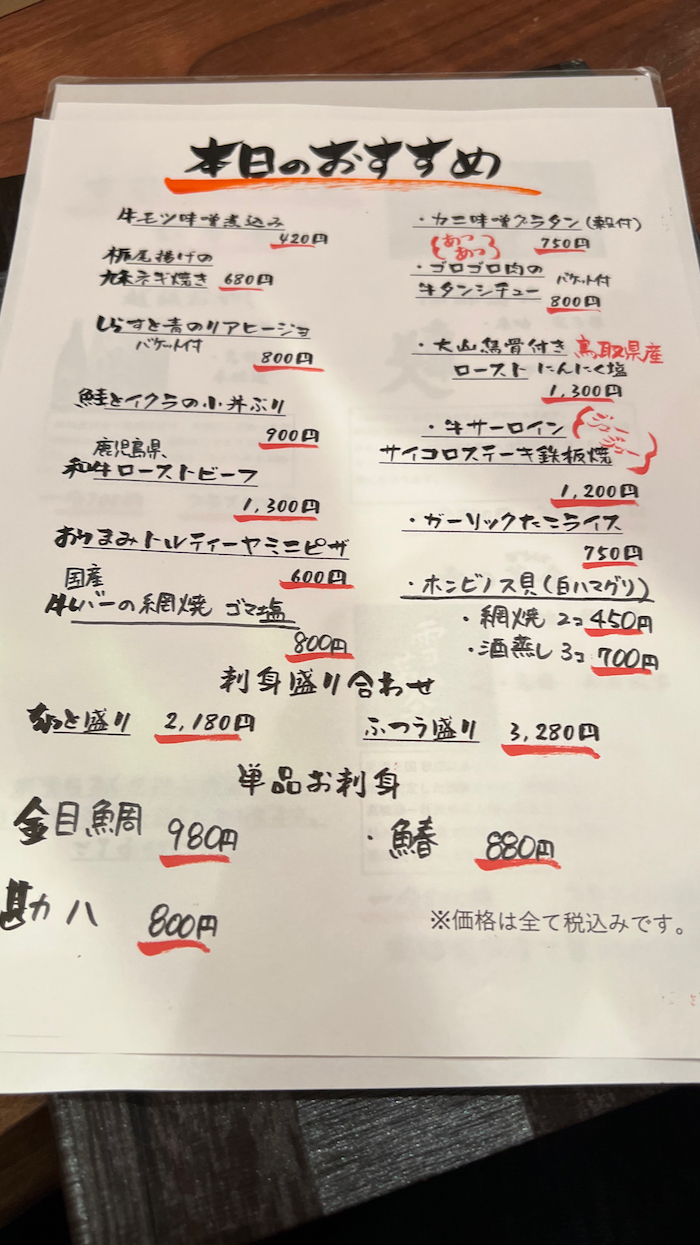 本日のおすすめ
牛モツ味噌煮込み
420円
栃尾揚げの
九条ネギ焼き 680円
しらすと青のリアヒージョ
バケット付
800円
鮭とイクラの小丼ぶり
900円
鹿児島県、
和牛ローストビーフ
1,300円
おつまみトルティーヤミニピザ
600円
国産
牛レバーの網焼 ゴマ塩
800円
・カニ味噌グラタン(殻付)
あつあつ
750円
・ゴロゴロ肉の
バケット付
牛タンシチュー
800円
・大山鶏骨付き 鳥取県産
ロースト にんにく塩
1,300円
・牛サーロイン
ジュージュー
サイコロステーキ鉄板焼
1,200円
・ガーリックたこライス
750円
・ホンビノス貝(白ハマグリ)
・網焼 2コ 450円
・酒蒸し 3コ 700円
刺身盛り合わせ
ちょっと盛り 2,180円
ふつう盛り 3,280円
単品お刺身
金目鯛 980円
・鰆 880円
勘八 800円
※価格は全て税込みです。